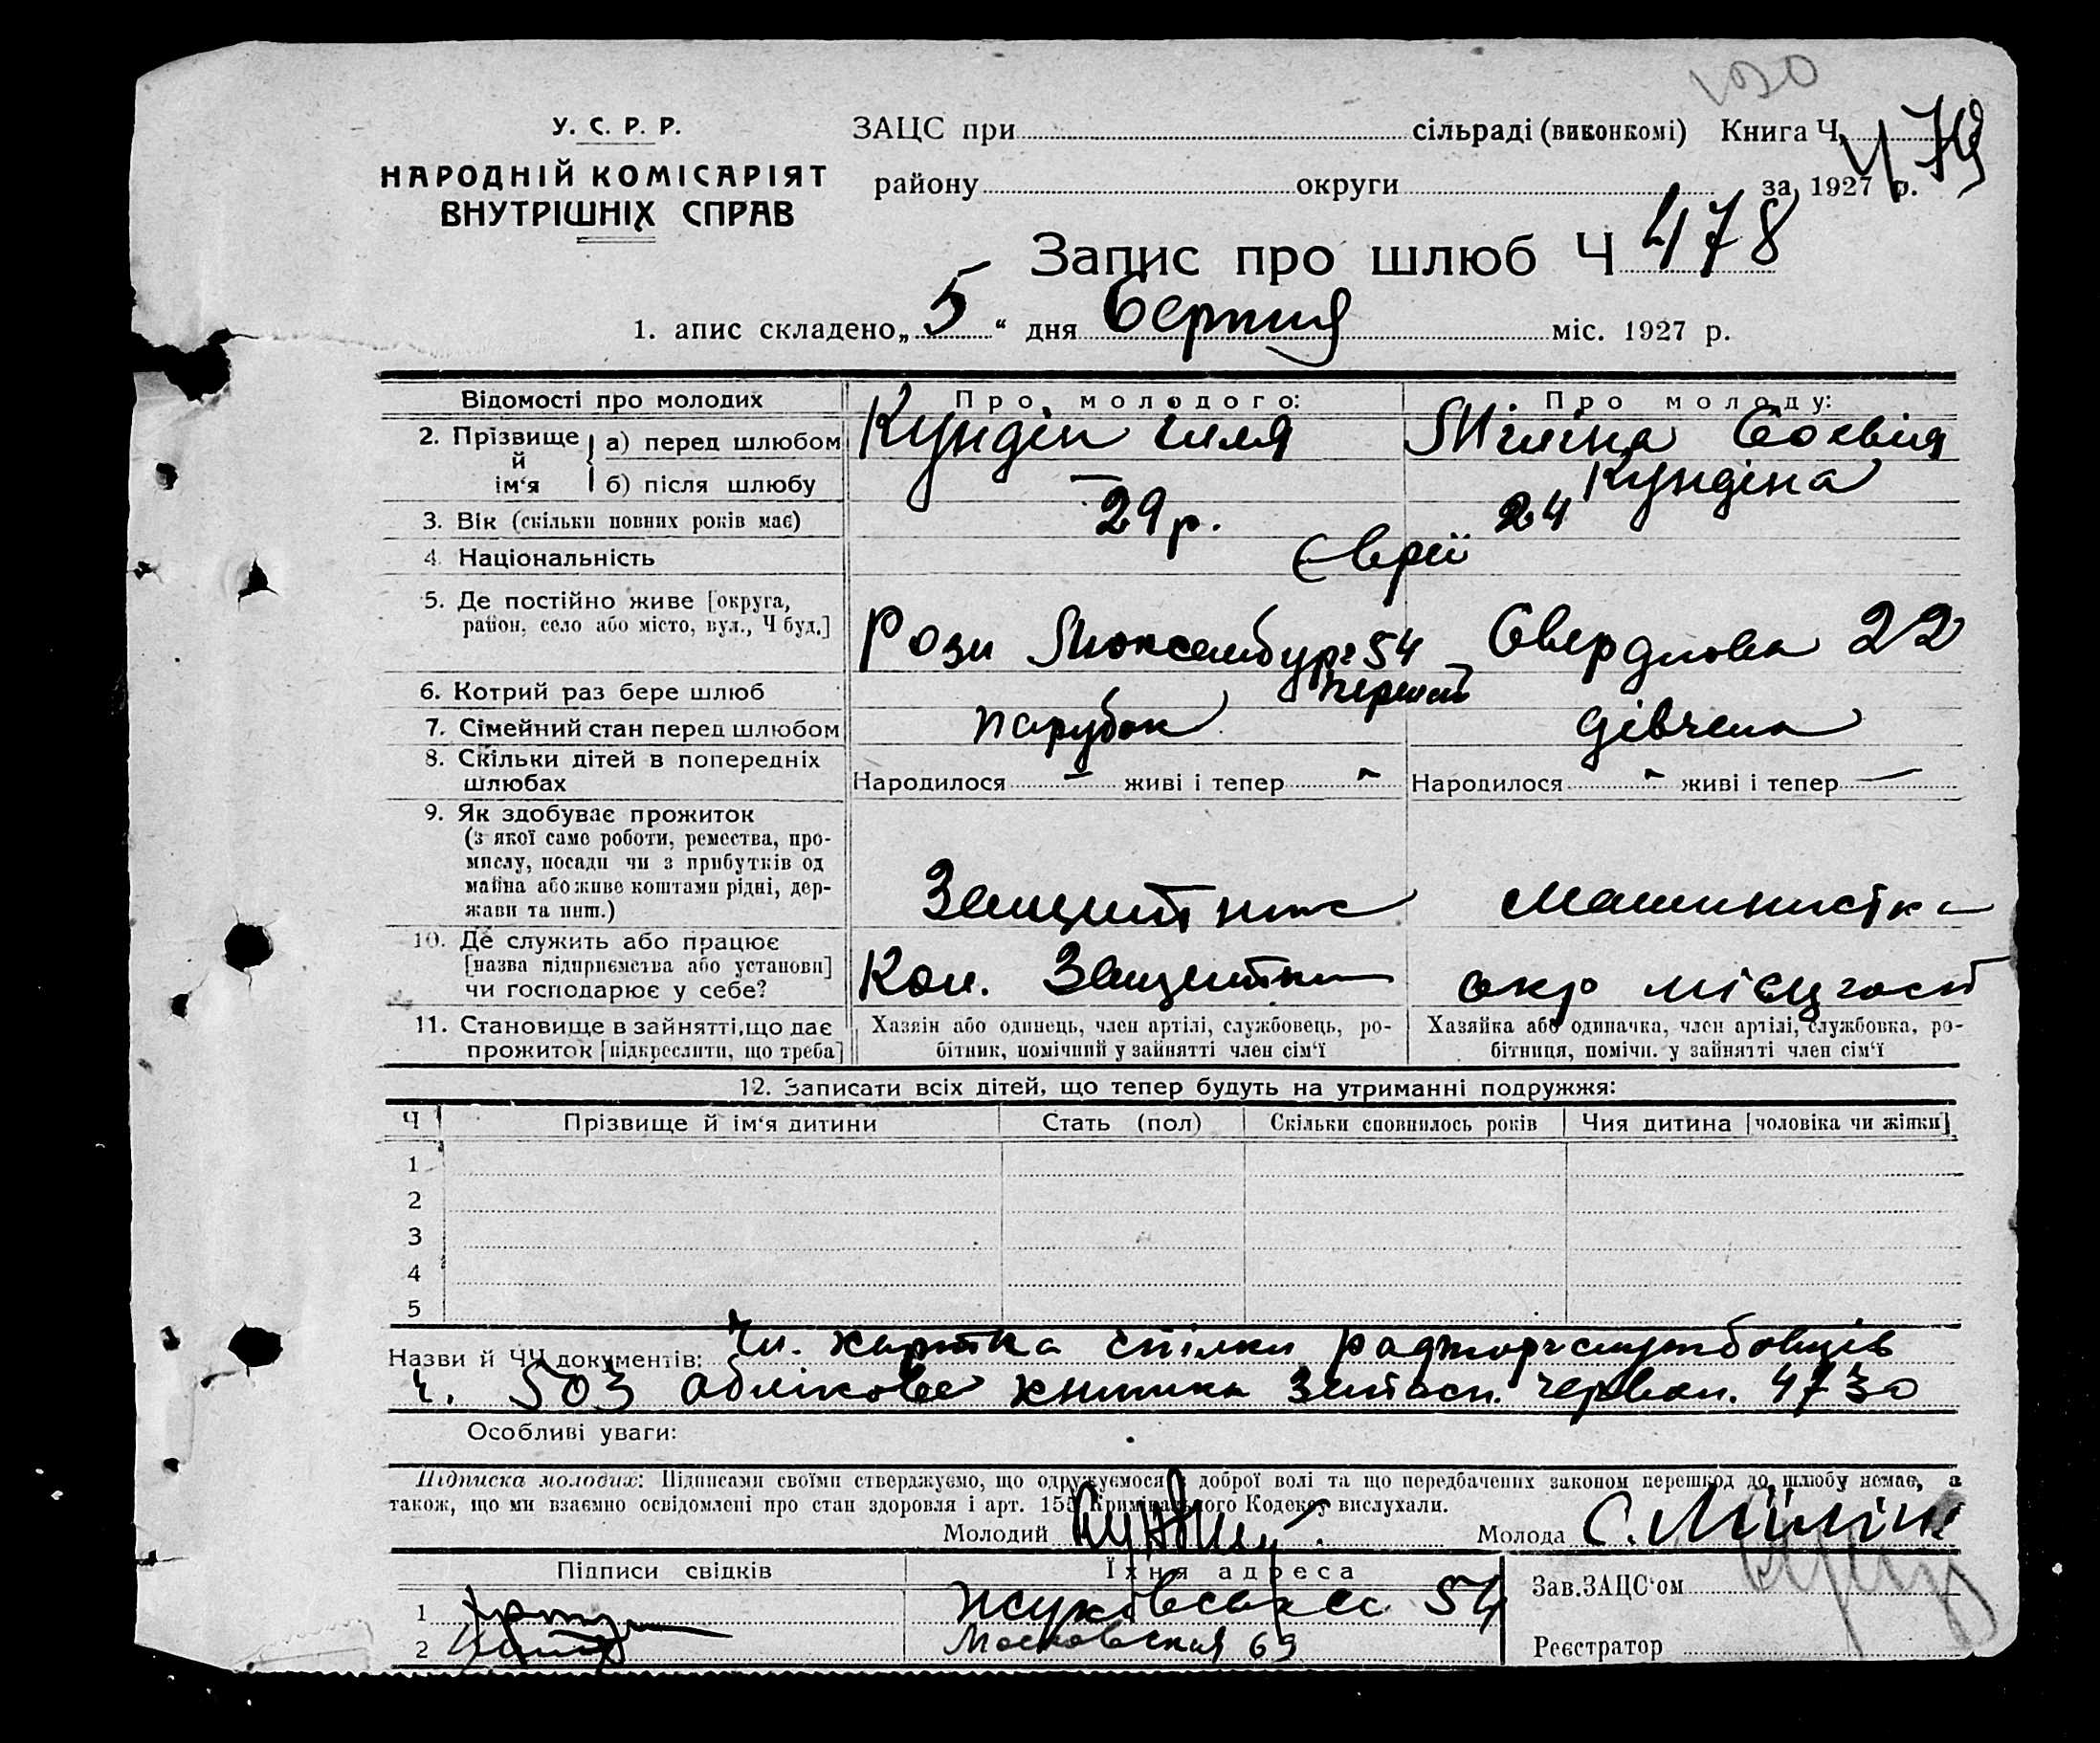 У. С. Р. Р.
НАРОДНІЙ КОМІСАРІЯТ
ВНУТРІШНІХ СПРАВ
ЗАЦС при сільраді (виконкомі) Книга Ч.
району округи за 1927 р.
Запис про шлюб Ч 478
1. апис складено „5“ дня Серпня міс. 1927 р.
Відомості про молодих Про молодого: Про молоду:
2. Прізвище й ім‘я а) перед шлюбом Кундін Ілля Мiлiна Софвія
б) після шлюбу — Кундіна
3. Вік (скільки повних років має) 29 р. 24
4. Національність Євреї
5. Де постійно живе [округа,
район, село або місто, вул., Ч буд.] Рози Люксембург 54 Свердлова 22
6. Котрий раз бере шлюб перший
7. Сімейний стан перед шлюбом парубок дівчина
8. Скільки дітей в попередніх
шлюбах Народилося — живі і тепер — Народилося — живі і тепер —
9. Як здобуває прожиток
(з якої саме роботи, ремества, про-
мислу, посади чи з прибутків од
майна або живе коштами рідні, дер-
жави та инш.) Защитник машинистка
10. Де служить або працює
[назва підприємства або установи]
чи господарює у себе? Кол. Защитник окр місцгосп
11. Становище в зайнятті, що дає
прожиток [підкреслити, що треба]
Хазяїн або одинець, член артілі, службовець, ро-
бітник, помічний у зайнятті член сім‘ї
Хазяйка або одиначка, член артілі, службовка, ро-
бітниця, помічн. у зайнятті член сім‘ї
12. Записати всіх дітей, що тепер будуть на утриманні подружжя:
Ч Прізвище й ім‘я дитини Стать (пол) Скільки сповнилось років Чия дитина [чоловіка чи жінки]
1
2
3
4
5
Назви й ЧЧ документів: Чл. картка спілки радторгслужбовців
ч. 503 облікова книжка запасн. червон. 4730
Особливі уваги:
Підписка молодих: Підписами своїми стверджуємо, що одружуємося з доброї волі та що передбачених законом перешкод до шлюбу немає, а
також, що ми взаємно освідомлені про стан здоровля і арт. 155 Кримінального Кодексу вислухали.
Молодий Молода С. Мілін
Підписи свідків Їхня адреса
1 Жуковська 54
2 Московская 69
Зав. ЗАЦС‘ом
Реєстратор